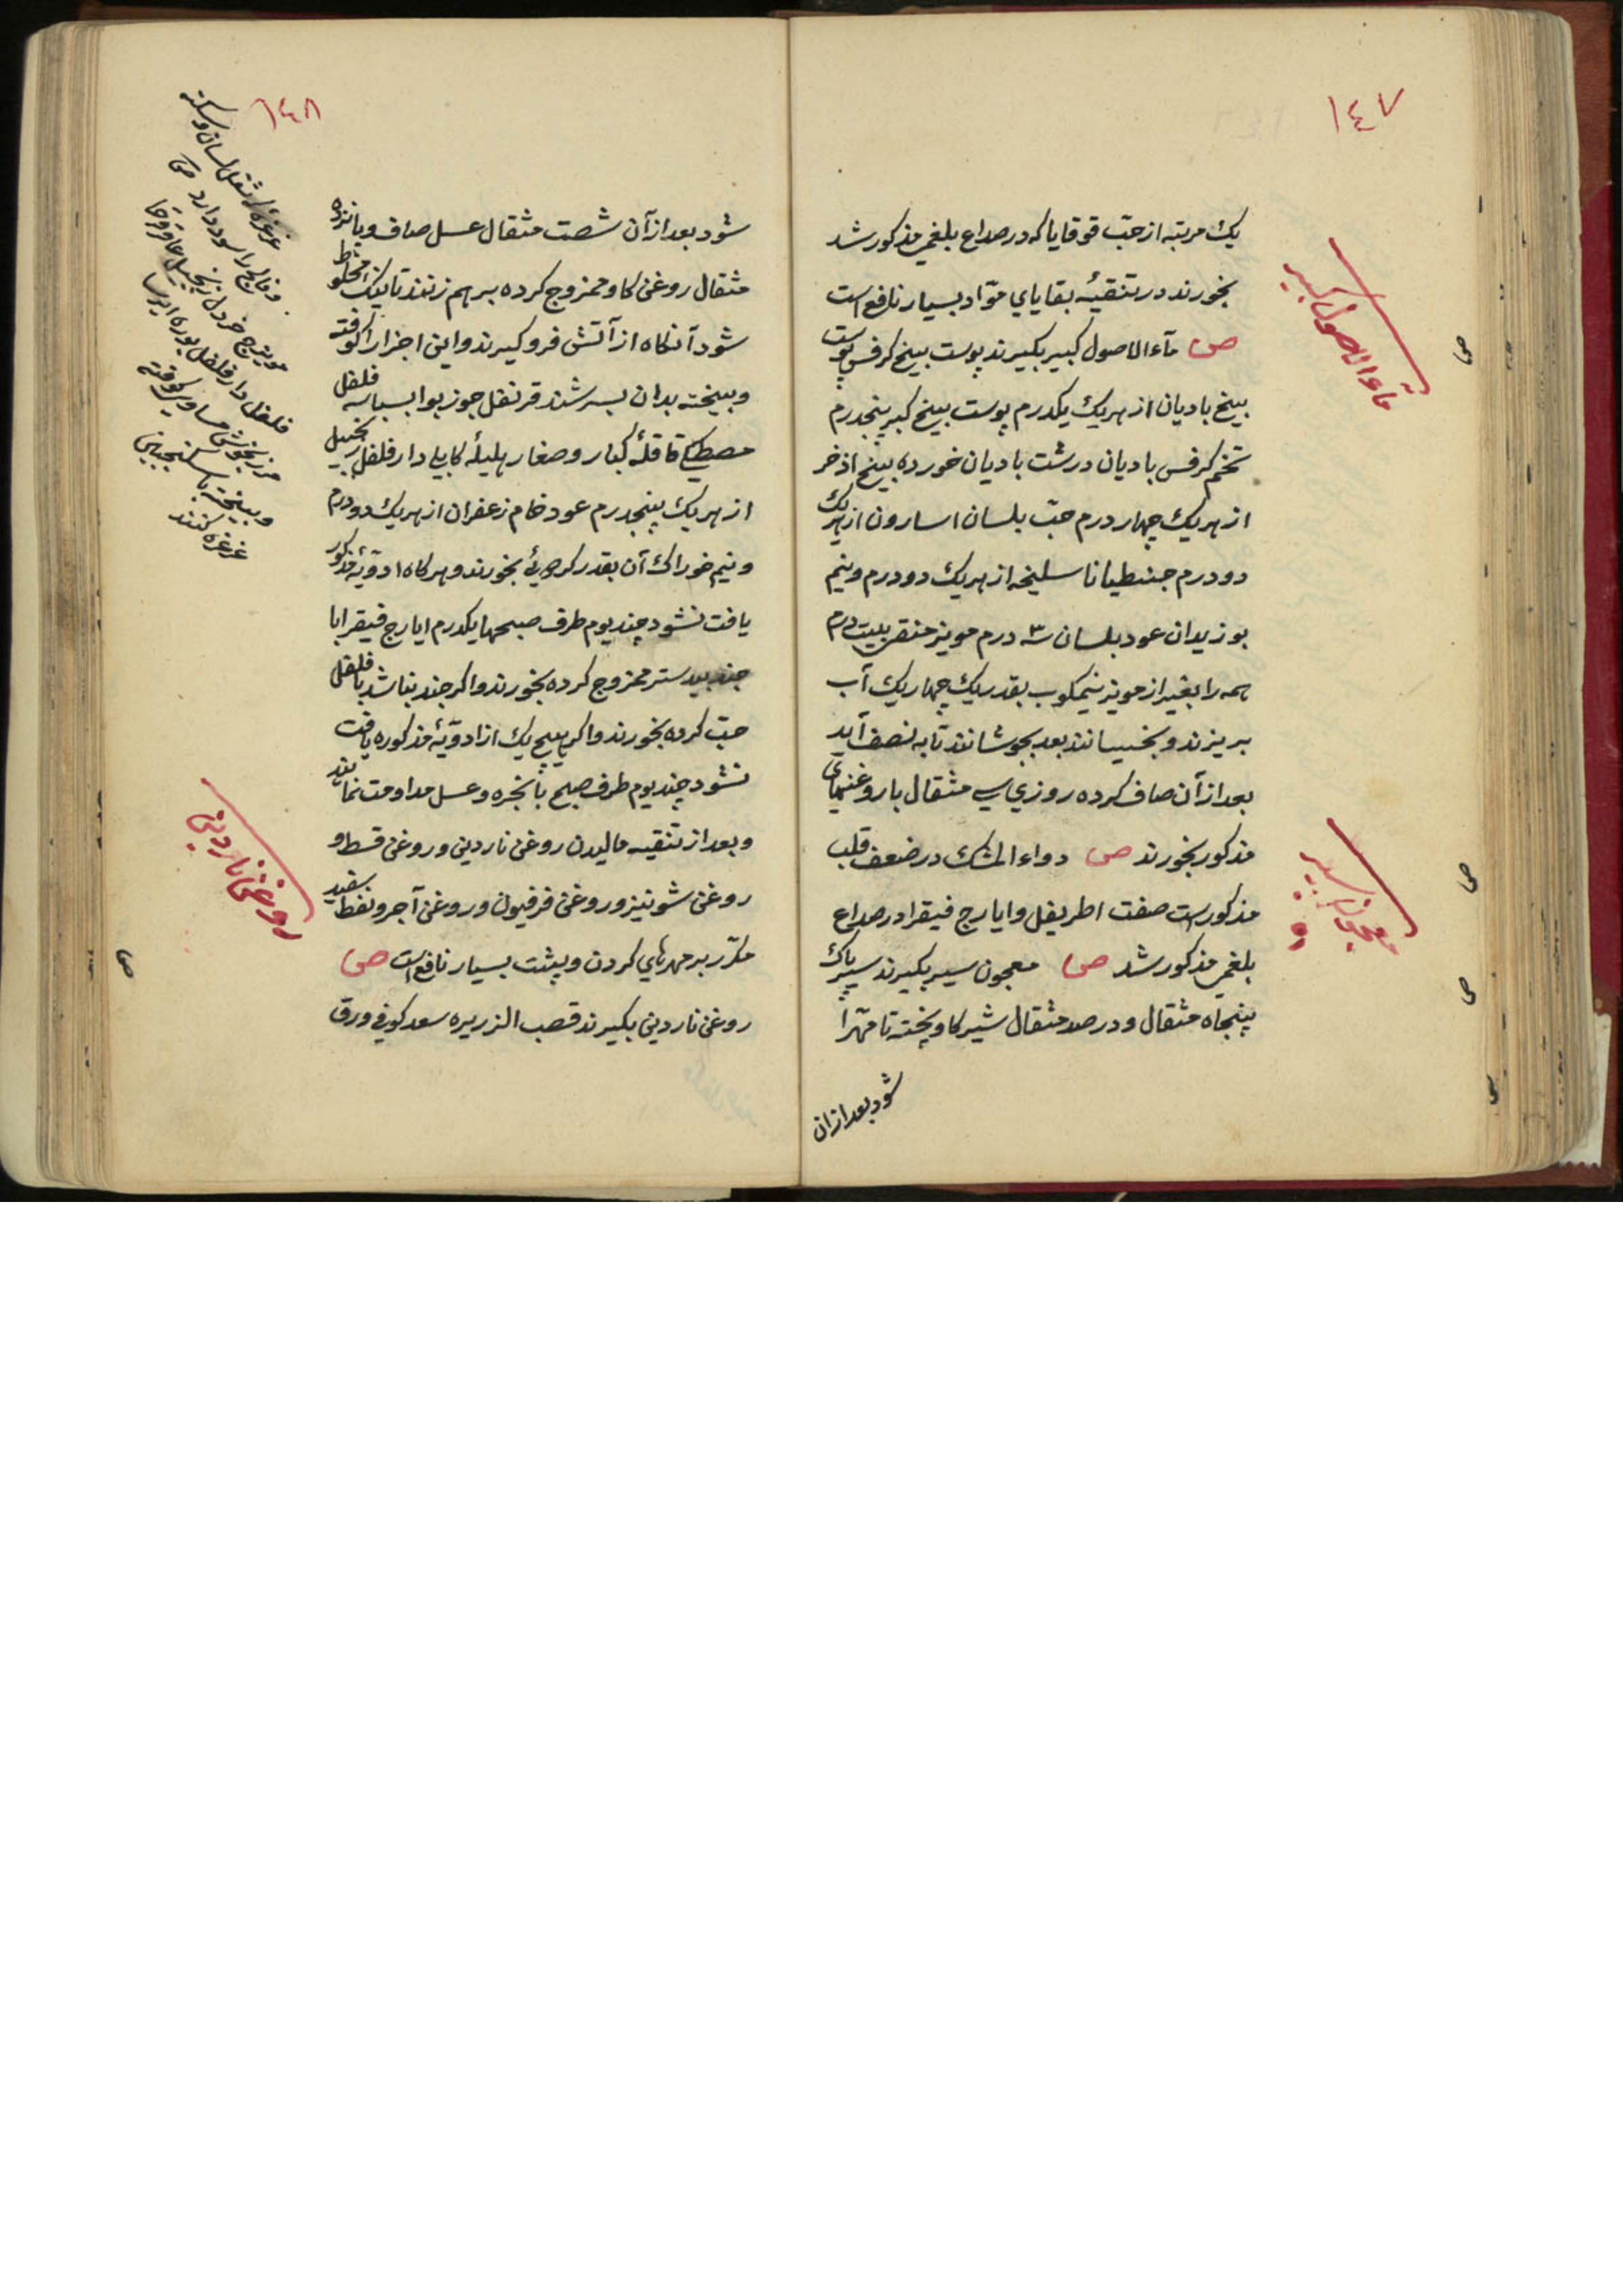 ١٤٧
یک مرتبه از حبّ قوقایا که در صداع بلغمی مذکور شد
بخورند در تنقیهٔ بقایای موّاد بسیار نافع است
ص مآء الاصول کبیر بکیرند پوست بیخ کرفس پوست
بیخ بادیان از هریک یکدرم پوست بیخ کبر پنجدرم
تخم کرفس بادیان درشت بادیان خورده بیخ اذخر
از هریک چهار درم حبّ بلسان اسارون از هریک
دو درم جنطیانا سلیخه از هریک دو درم ونیم
بوزیدان عود بلسان ٣ درم مویز منقی بیست درم
همه را بغیر از مویز نیمکوب بقدر یک چهار یک آب
بریزند و بخسیانند بعد بجوشانند تا به نصف آید
بعد از آن صاف کرده روزی سی مثقال با روغنهای
مذکور بخورند ص دواء المشک در ضعف قلب
مذکور است صفت اطریفل و ایارج فیقرا در صداع
بلغمی مذکور شد ص معجون سیر بکیرند سیر پاک
پنجاه مثقال و در صد مثقال شیر کاو پخته تا مهّرا
شود بعد ازان
مآء الاصول کبیر
معجون سیر
ص
ص
ص
١٤٨
شود بعد از آن شصت مثقال عسل صاف و پانزده
مثقال روغن کاو ممزوج کرده برهم زنند تا نیک مخلوط
شود آنکاه از آتش فرو کیرند و این اجزا را کوفته
و بیخته بدان بسرشند قرنفل جوز بوا بسباسه فلفل
مصطکی قاقلهٔ کبار و صغار هلیلهٔ کابلی دارفلفل زنجبیل
از هریک پنجدرم عود خام زعفران از هریک دو درم
ونیم خوراک آن بقدر بخورند و هرکاه ادویهٔ مذکور
یافت نشود چند یوم طرف صبحها یکدرم ایارج فیقرا با
جند بیدستر ممزوج کرده بخورند و اکر جند نباشد با فلفل
حبّ کرده بخورند و اکر هیچ یک از ادویهٔ مذکوره یافت
نشود چند یوم طرف صبح با نجره و عسل مداومت نمایند
و بعد از تنقیه مالیدن روغن ناردین و روغن قسط و
روغن شونیز و روغن فرفیون و روغن آجر و نفط سفید
مکرّر بر مهرهای کردن و پشت بسیار نافع است ص
روغن ناردین بکیرند قصب الزریره سعد کوفی ورق
غرغرهٔ که ثقل لسان و سکته
و فالج را سود دارد ص
مویزج خردل زنجبیل عاقرقرحا
فلفل دارفلفل بوره ایرسا
مرزنجوش مساوی کوفته
و بیخته با سکنجبین
غرغره کنند
روغن ناردین
ص